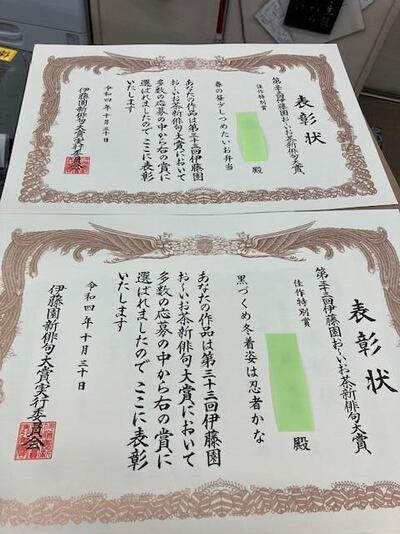 表彰状
第三十三回伊藤園お〜いお茶新俳句大賞
佳作特別賞
殿
春の昼少しつめたいお弁当
あなたの作品は第三十三回伊藤園
お〜いお茶新俳句大賞において
多数の応募の中から右の賞に
選ばれましたのでここに表彰
いたします
令和四年十月三十日
伊藤園新俳句大賞実行委員会
表彰状
第三十三回伊藤園お〜いお茶新俳句大賞
佳作特別賞
殿
黒づくめ冬着姿は忍者かな
あなたの作品は第三十三回伊藤園
お〜いお茶新俳句大賞において
多数の応募の中から右の賞に
選ばれましたのでここに表彰
いたします
令和四年十月三十日
伊藤園新俳句大賞実行委員会